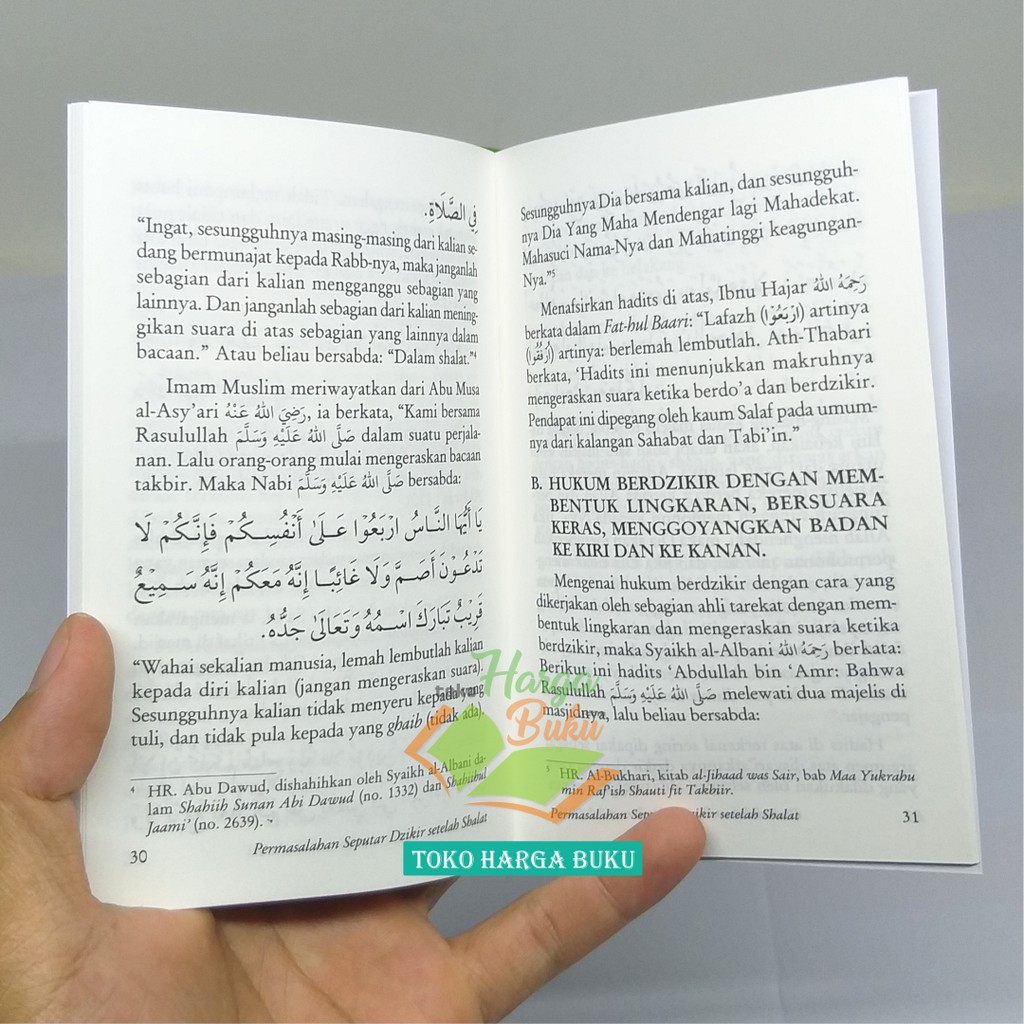 فِي الصَّلَاةِ.
“Ingat, sesungguhnya masing-masing dari kalian se-
dang bermunajat kepada Rabb-nya, maka janganlah
sebagian dari kalian mengganggu sebagian yang
lainnya. Dan janganlah sebagian dari kalian mening-
gikan suara di atas sebagian yang lainnya dalam
bacaan.” Atau beliau bersabda: “Dalam shalat.”⁴
Imam Muslim meriwayatkan dari Abu Musa
al-Asy’ari رَضِيَ اللهُ عَنْهُ, ia berkata, “Kami bersama
Rasulullah صَلَّى اللهُ عَلَيْهِ وَسَلَّمَ dalam suatu perjala-
nan. Lalu orang-orang mulai mengeraskan bacaan
takbir. Maka Nabi صَلَّى اللهُ عَلَيْهِ وَسَلَّمَ bersabda:
يَا أَيُّهَا النَّاسُ ارْبَعُوْا عَلَىٰ أَنْفُسِكُمْ فَإِنَّكُمْ لَا
تَدْعُوْنَ أَصَمَّ وَلَا غَائِبًا إِنَّهُ مَعَكُمْ إِنَّهُ سَمِيْعٌ
قَرِيْبٌ تَبَارَكَ اسْمُهُ وَتَعَالَىٰ جَدُّهُ.
“Wahai sekalian manusia, lemah lembutlah kalian
kepada diri kalian (jangan mengeraskan suara).
Sesungguhnya kalian tidak menyeru kepada yang
tuli, dan tidak pula kepada yang ghaib (tidak ada),
⁴ HR. Abu Dawud, dishahihkan oleh Syaikh al-Albani da-
lam Shahiih Sunan Abi Dawud (no. 1332) dan Shahiihul
Jaami’ (no. 2639).
Permasalahan Seputar Dzikir setelah Shalat
30
Sesungguhnya Dia bersama kalian, dan sesungguh-
nya Dia Yang Maha Mendengar lagi Mahadekat.
Mahasuci Nama-Nya dan Mahatinggi keagungan-
Nya.”⁵
Menafsirkan hadits di atas, Ibnu Hajar رَحِمَهُ اللهُ
berkata dalam Fat-hul Baari: “Lafazh (ارْبَعُوْا) artinya
(اُرْفُقُوا) artinya: berlemah lembutlah. Ath-Thabari
berkata, ‘Hadits ini menunjukkan makruhnya
mengeraskan suara ketika berdo’a dan berdzikir.
Pendapat ini dipegang oleh kaum Salaf pada umum-
nya dari kalangan Sahabat dan Tabi’in.”
B. HUKUM BERDZIKIR DENGAN MEM-
BENTUK LINGKARAN, BERSUARA
KERAS, MENGGOYANGKAN BADAN
KE KIRI DAN KE KANAN.
Mengenai hukum berdzikir dengan cara yang
dikerjakan oleh sebagian ahli tarekat dengan mem-
bentuk lingkaran dan mengeraskan suara ketika
berdzikir, maka Syaikh al-Albani رَحِمَهُ اللهُ berkata:
Berikut ini hadits ‘Abdullah bin ‘Amr: Bahwa
Rasulullah صَلَّى اللهُ عَلَيْهِ وَسَلَّمَ melewati dua majelis di
masjidnya, lalu beliau bersabda:
⁵ HR. Al-Bukhari, kitab al-Jihaad was Sair, bab Maa Yukrahu
min Raf’ish Shauti fit Takbiir.
Permasalahan Dzikir setelah Shalat
31
toko Harga
Buku
TOKO HARGA BUKU